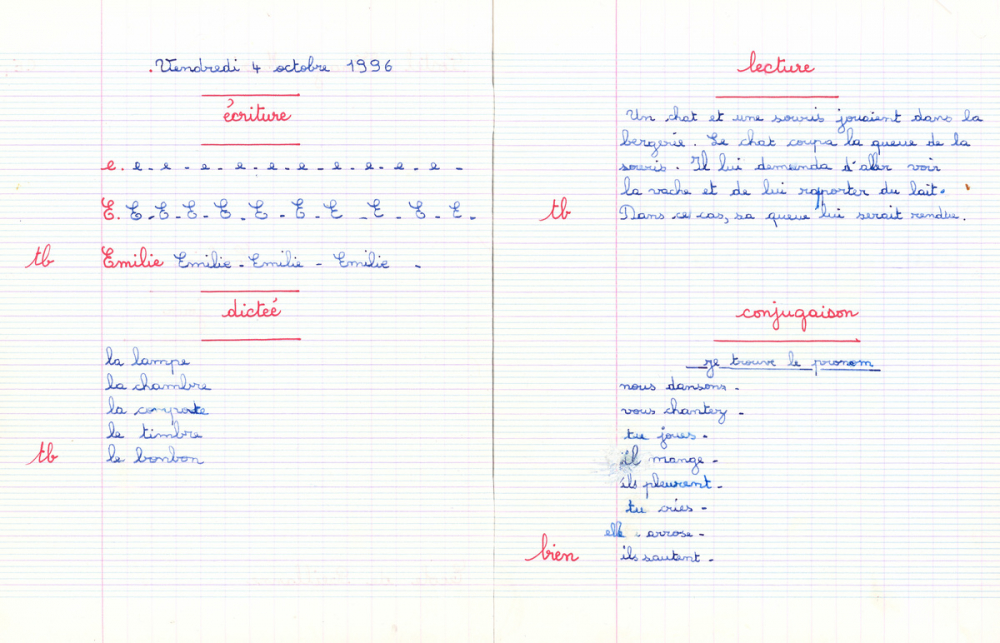 .Vendredi 4 octobre 1996
écriture
e. e - e - e - e - e - e - e - e - e - e - e -
E. E - E - E - E - E - E - E - E - E - E -
tb Emilie Emilie - Emilie - Emilie -
dicteé
la lampe
la chambre
la compote
le timbre
tb le bonbon
lecture
Un chat et une souris jouaient dans la
bergerie. Le chat coupa la queue de la
souris. Il lui demanda d'aller voir
la vache et de lui rapporter du lait.
tb Dans ce cas, sa queue lui serait rendue.
conjugaison
je trouve le pronom
nous dansons -
vous chantez -
tu joues -
il mange -
ils pleurent -
tu cries -
elle arrose -
bien ils sautent -